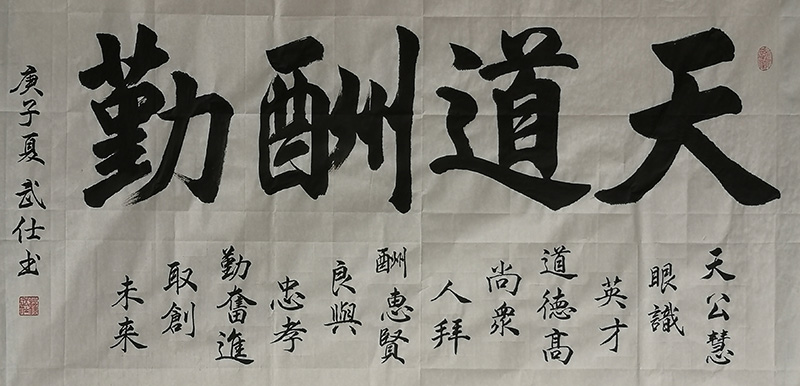 天道酬勤
天公慧
眼識
英才
道德高
尚眾
人拜
酬惠賢
良與
忠孝
勤奮進
取創
未来
庚子夏武仕书